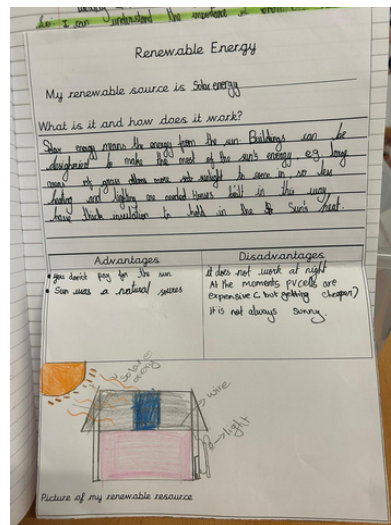 I can understand the importance of
Renewable Energy
My renewable source is Solar energy
What is it and how does it work?
Solar energy means the energy from the sun. Buildings can be
designed to make the most of the sun's energy e.g. large
areas of glass allows more sunlight to come in so less
heating and lighting are needed Homes built in this way
have thick insulation to hold in the Sun's heat.
Advantages
• you don't pay for the sun
• Sun was a natural
Disadvantages
it does not work at night
At the moments PV cells are
expensive (but getting cheaper)
it is not always sunny.
solar energy
wire
light
Picture of my renewable resource